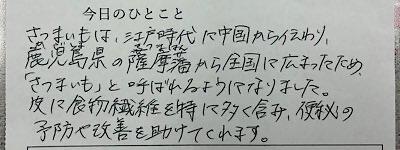 今日のひとこと
さつまいもは、江戸時代に中国から伝わり、
鹿児島県の薩摩藩から全国に広まったため、
「さつまいも」と呼ばれるようになりました。
皮に食物繊維を特に多く含み、便秘の
予防や改善を助けてくれます。